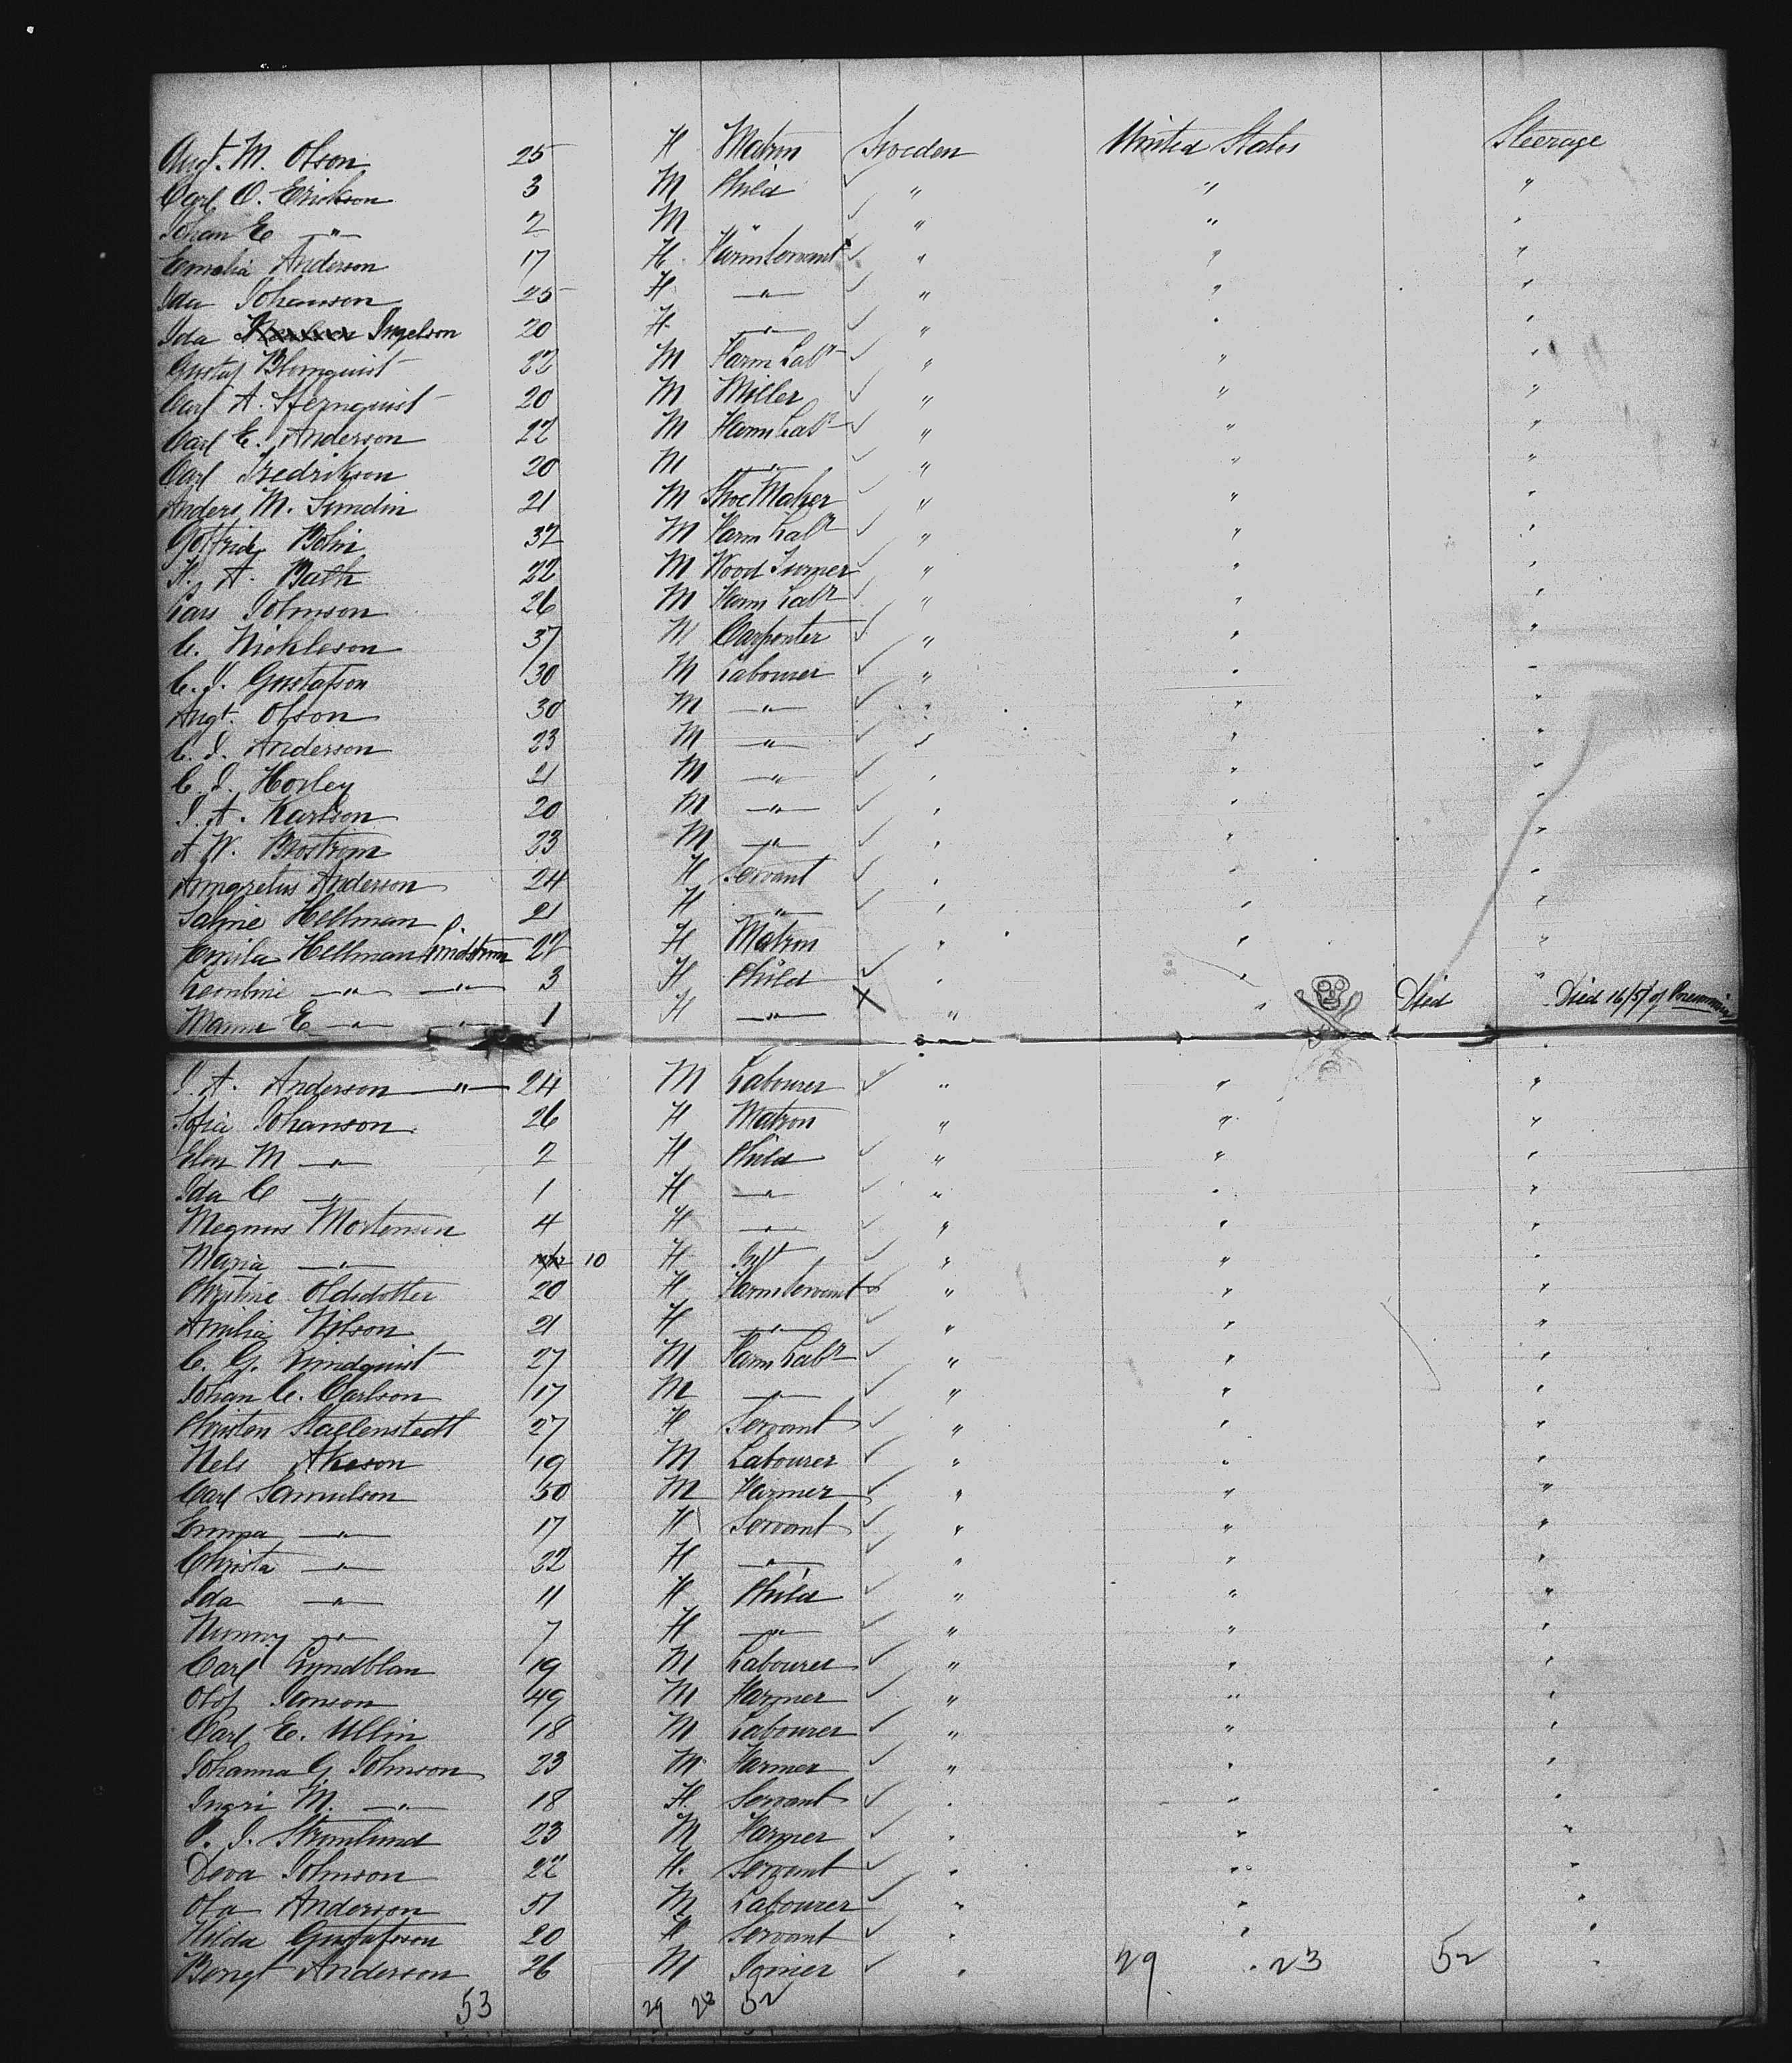 Augt. M. Olson 25 F Matron Sweden United States Steerage
Carl O. Erickson 3 M Child ✓ " " "
Johan E —"— 2 M " ✓ " " "
Emelia Anderson 17 F Farm Servant ✓ " " "
Ida Johanson 25 F —"— ✓ " " "
Ida Ingelson 20 F —"— ✓ " " "
Gustaf Blomquist 22 M Farm Labr ✓ " " "
Carl A. Sternquist 20 M Miller ✓ " " "
Carl E. Anderson 22 M Farm Labr ✓ " " "
Carl Fredrikson 20 M —"— ✓ " " "
Anders M. Sundin 21 M Shoe Maker ✓ " " "
Gottfrid Bolin 32 M Farm Labr ✓ " " "
F. A. Bath 22 M Wood Turner ✓ " " "
Lars Johnson 26 M Farm Labr ✓ " " "
C. Nickleson 37 M Carpenter ✓ " " "
C. J. Gustafson 30 M Labourer ✓ " " "
Augt. Olson 30 M —"— ✓ " " "
C. J. Anderson 23 M —"— ✓ " " "
C. J. Horley 21 M —"— ✓ " " "
J. A. Karlson 20 M —"— ✓ " " "
A. W. Brostrom 23 M —"— ✓ " " "
Anderson 24 F Servant ✓ " " "
Hellman 21 F —"— ✓ " " "
Hellman Lindstrom 22 F Matron " " "
—"— —"— 3 F Child ✓ " " "
E —"— —"— 1 F —"— X " " Died Died 16/5/ of Pneumonia
J. A. Anderson —"— 24 M Labourer ✓ " " "
Sofia Johanson 26 F Matron " " "
Elen M —"— 2 F Child ✓ " " "
Ida C —"— 1 F —"— ✓ " " "
Megnus Mortensen 4 F —"— ✓ " " "
Maria —"— 10 F Inft ✓ " " "
Christine Oldsdotter 20 F Farm Servant ✓ " " "
Amilia Nilson 21 F —"— ✓ " " "
C. G. Lundquist 27 M Farm Labr ✓ " " "
Johan C. Carlson 17 M —"— ✓ " " "
Christen Staelenstedt 27 F Servant ✓ " " "
Nels Akeson 19 M Labourer ✓ " " "
Carl Samulson 50 M Farmer ✓ " " "
Emma —"— 17 F Servant ✓ " " "
Christa —"— 22 F —"— ✓ " " "
Ida —"— 11 F Child ✓ " " "
Nunny —"— 7 F —"— ✓ " " "
Carl Lyndblan 19 M Labourer ✓ " " "
Olof Janson 49 M Farmer ✓ " " "
Carl E. Ullin 18 M Labourer ✓ " " "
Johanna G Johnson 23 M Farmer ✓ " " "
Ingri M. —"— 18 F Servant ✓ " " "
P. J. Stromlund 23 M Farmer ✓ " " "
Deva Johnson 22 F Servant ✓ " " "
Ola Anderson 51 M Labourer ✓ " " "
Hilda Gustafsson 20 F Servant ✓ " " "
Bengt Anderson 26 M Joiner ✓ " 29 " 23 52 "
53 29 23 52